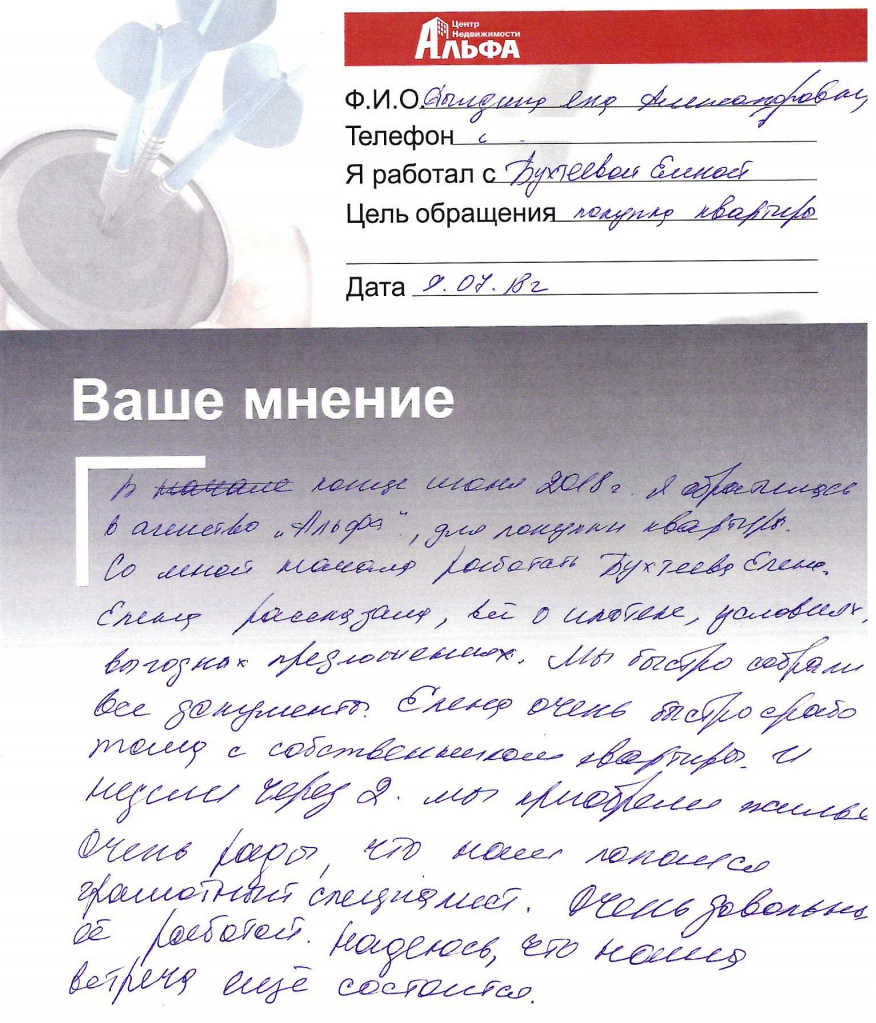 Центр
Недвижимости
АЛЬФА
Ф.И.О. Александровна
Телефон
Я работал с Бухтеевой Еленой
Цель обращения покупка квартиры
Дата 9.07.18г
Ваше мнение
В начале конце июня 2018г. я обратилась
в агенство „Альфа", для покупки квартиры.
Со мной начала работать Бухтеева Елена.
Елена рассказала, всё о ипотеке, условиях,
выгодных предложениях. Мы быстро собрали
все документы. Елена очень быстро срабо
тала с собственником квартиры. И
недели через 2. мы приобрели жильё
Очень рады, что нам попался
грамотный специалист. Очень довольны
её работой. Надеюсь, что наша
встреча ещё состоится.